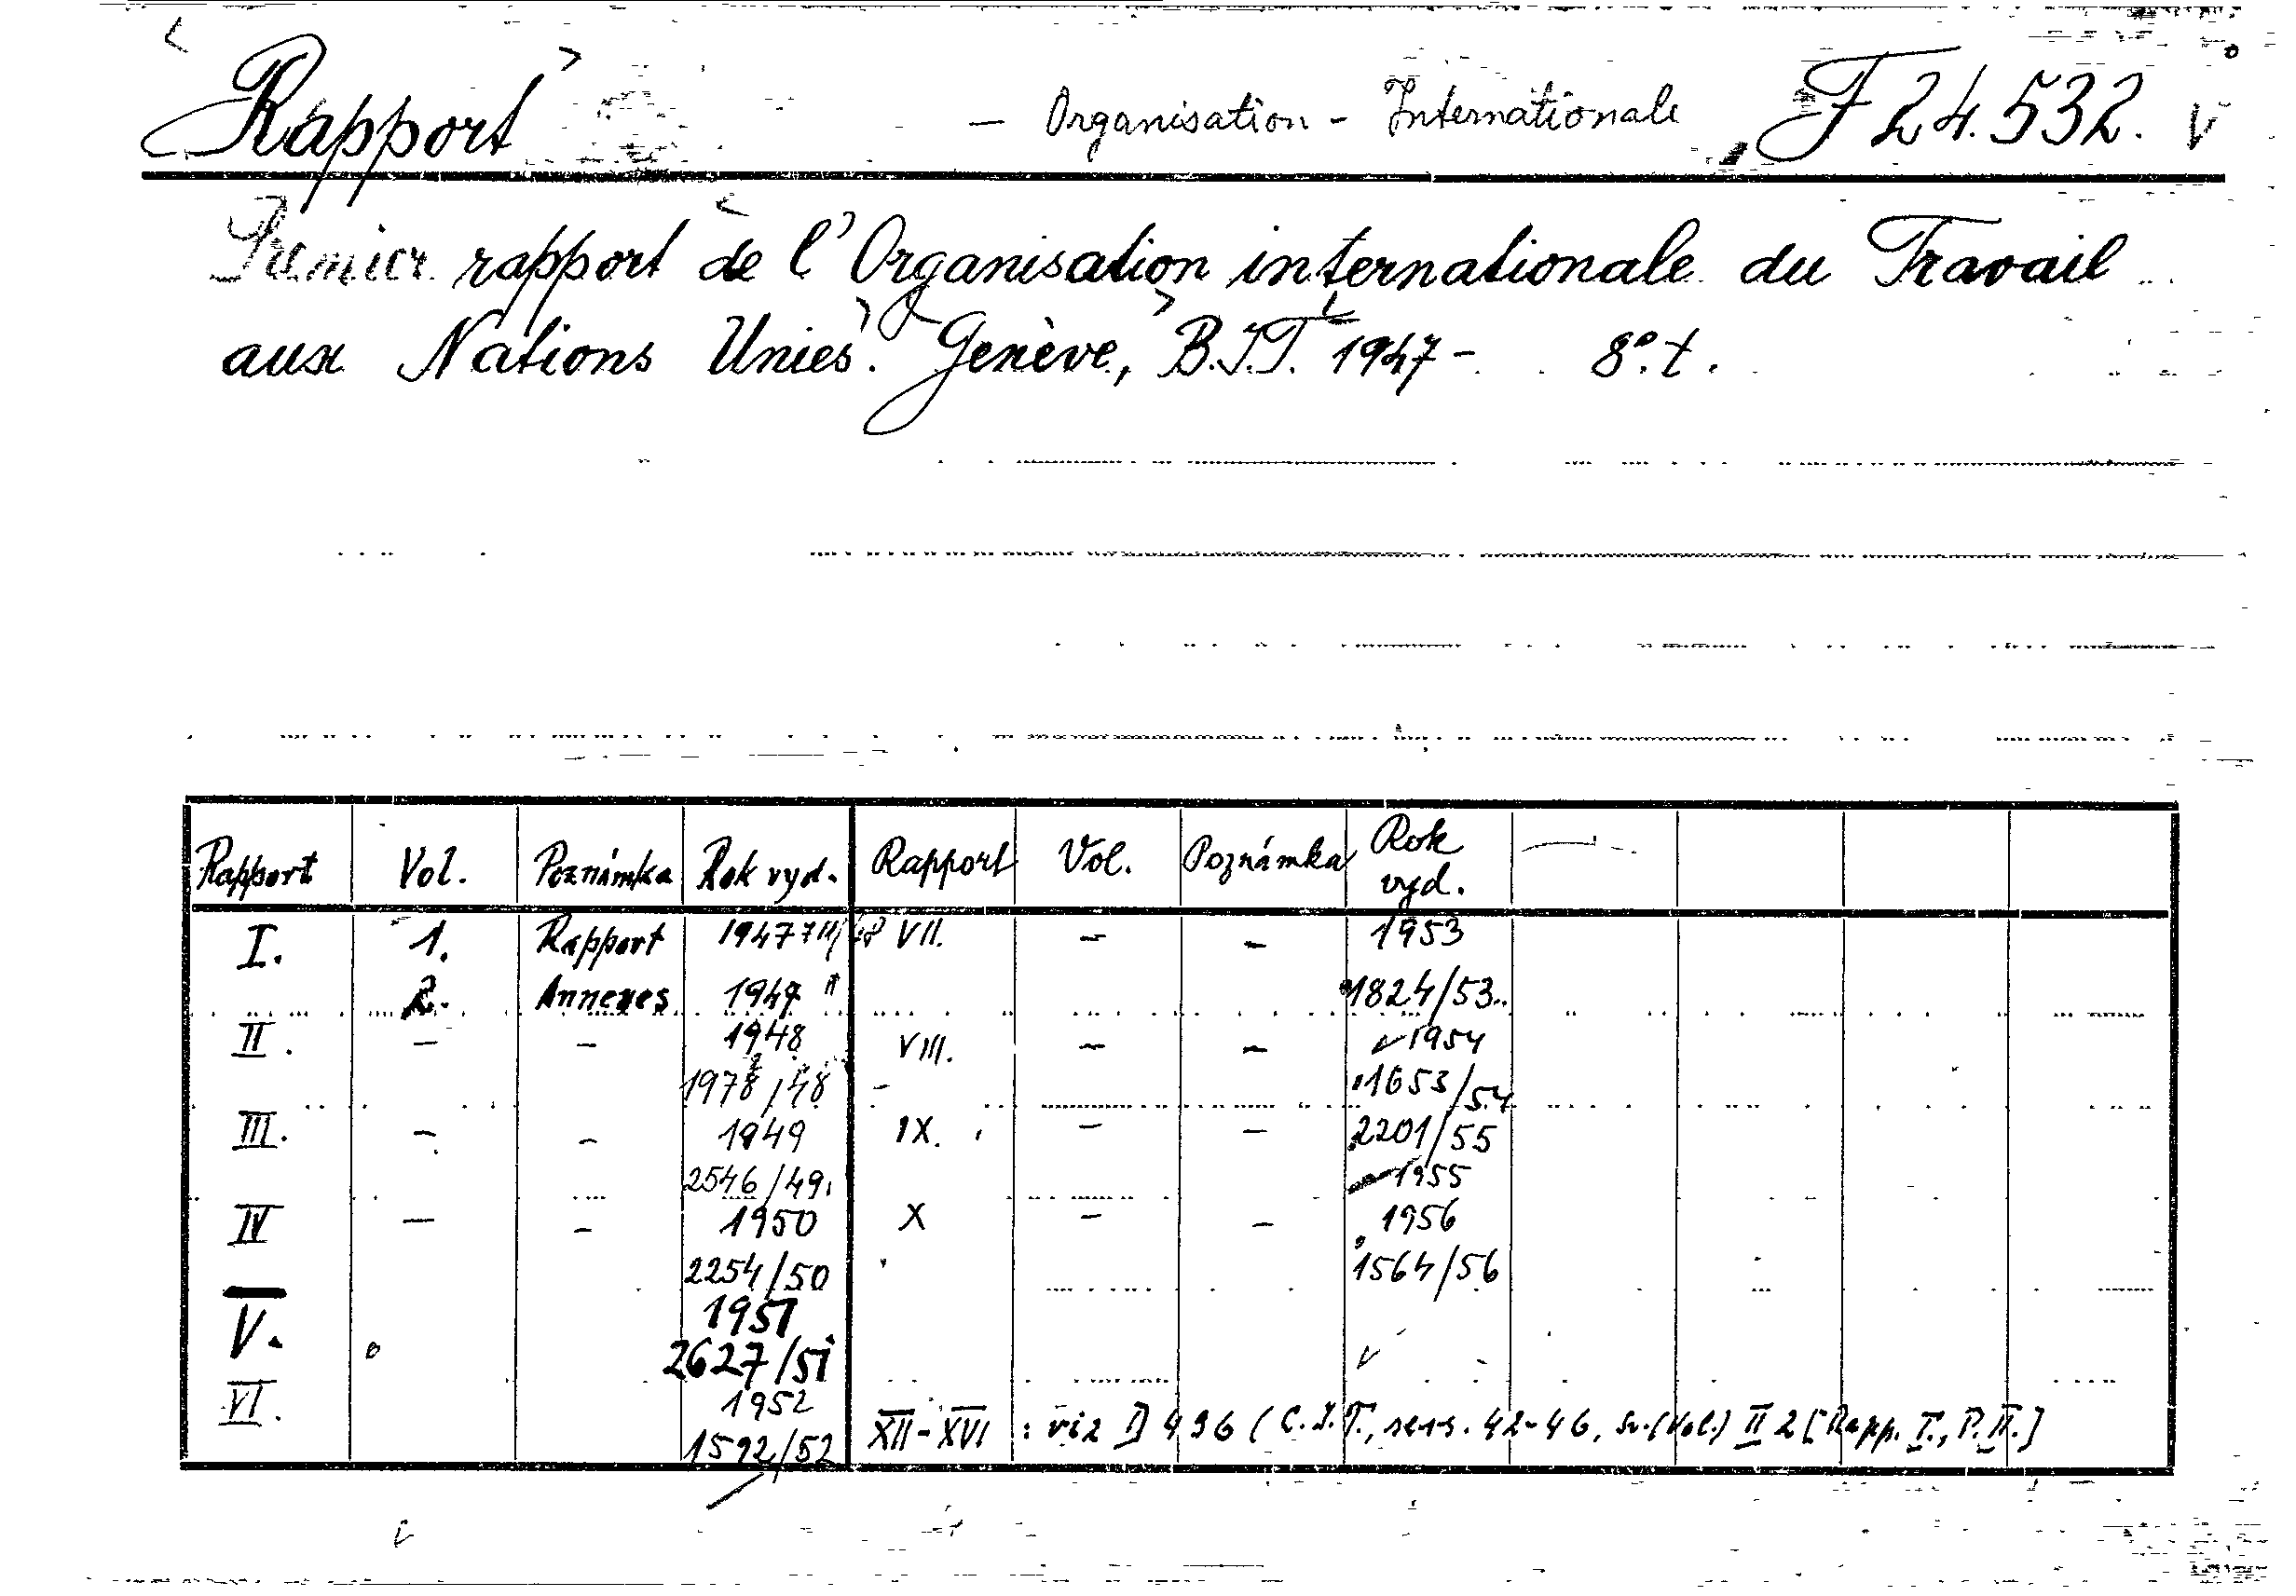 Rapport — Organisation - Internationale F 24.532.
Premier rapport de l'Organisation internationale du Travail
aux Nations Unies. Genève, B.I.T. 1947 - 8°. t.
Rapport Vol. Poznámka Rok vyd. Rapport Vol. Poznámka Rok vyd.
I. 1. Rapport 1947 VII. — — 1953
2. Annexes 1947 1824/53
II. — — 1948 VIII. — — 1954
1978/48 1653/54
III. — — 1949 IX. — — 2201/55
2546/49 1955
IV — — 1950 X — — 1956
2254/50 1564/56
V. 1951
2627/51
VI. 1952
1592/52 XII-XVI : viz D 496 (C.I.T., sess. 42-46, sv.(Vol.) II 2 [Rapp. I., P. II.]